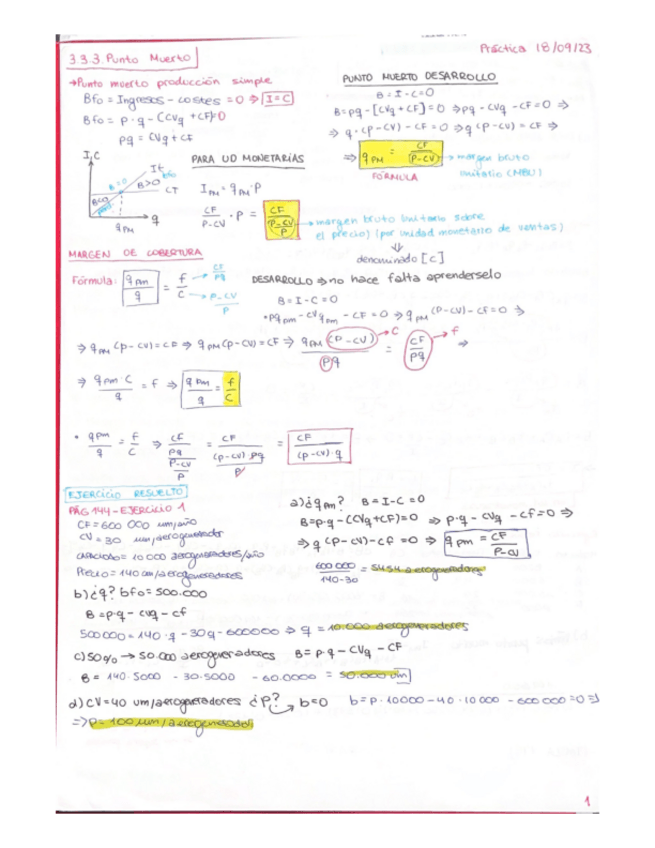 Práctica 18/09/23
3.3.3 Punto Muerto
→Punto muerto producción simple
Bfo = Ingresos - costes = 0 ⇒ I=C
Bfo = p·q - (CVq + CF)=0
pq = CVq + CF
PUNTO MUERTO DESARROLLO
B = I - C = 0
B = pq - [CVq + CF] = 0 ⇒ pq - CVq - CF = 0 ⇒
⇒ q·(P-CV) - CF = 0 ⇒ q(P-CV) = CF ⇒
⇒ q PM = CF / (P-CV) → margen bruto
unitario (MBU)
FÓRMULA
I,C
It
B=0
B>0
CT
q
q PM
PARA UD MONETARIAS
I PM = q PM · P
CF / (P-CV) · P = CF / ((P-CV)/P) → margen bruto unitario sobre
el precio) (por unidad monetaria de ventas)
⇓
denominado [c]
MARGEN DE COBERTURA
Fórmula: q PM / q = f / c
f → CF / pq
c → P-CV / P
DESARROLLO ⇒ no hace falta aprenderselo
B = I - C = 0
• pq PM - CVq PM - CF = 0 ⇒ q PM (P-CV) - CF = 0 ⇒
⇒ q PM (P-CV) = CF ⇒ q PM (P-CV) = CF ⇒ q PM (P-CV) / pq = CF / pq ⇒
c
f
⇒ q PM C / q = f ⇒ q PM / q = f / c
• q PM / q = f / c ⇒ (CF / pq) / ((P-CV) / P) = CF / ((P-CV)·pq / P) = CF / ((P-CV)·q)
EJERCICIO RESUELTO
PÁG 144 - EJERCICIO 1
CF = 600 000 um/año
CV = 30 um/aerogenerador
CAPACIDAD = 10 000 aerogeneradores/año
Precio = 140 um/aerogeneradores
a) ¿q PM? B = I - C = 0
B = p·q - (CVq + CF) = 0 ⇒ p·q - CVq - CF = 0 ⇒
⇒ q (P-CV) - CF = 0 ⇒ q PM = CF / P-CV
600 000 / 140-30 = 5454 aerogeneradores
b) ¿q? bfo = 500.000
B = p·q - CVq - CF
500000 = 140·q - 30q - 600000 ⇒ q = 10.000 aerogeneradores
c) 50% → 50.000 aerogeneradores B = p·q - CVq - CF
B = 140·5000 - 30·5000 - 60.0000 = 50.000 um
d) CV = 40 um/aerogeneradores ¿P? → b=0 b = P·10000 - 40·10 000 - 600 000 = 0 ⇒
⇒ P = 100 um/aerogenerador
1